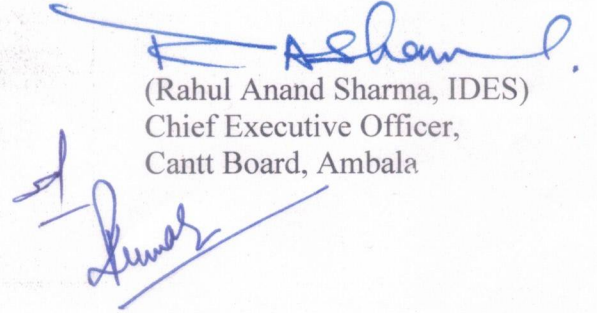 (Rahul Anand Sharma, IDES)
Chief Executive Officer,
Cantt Board, Ambala